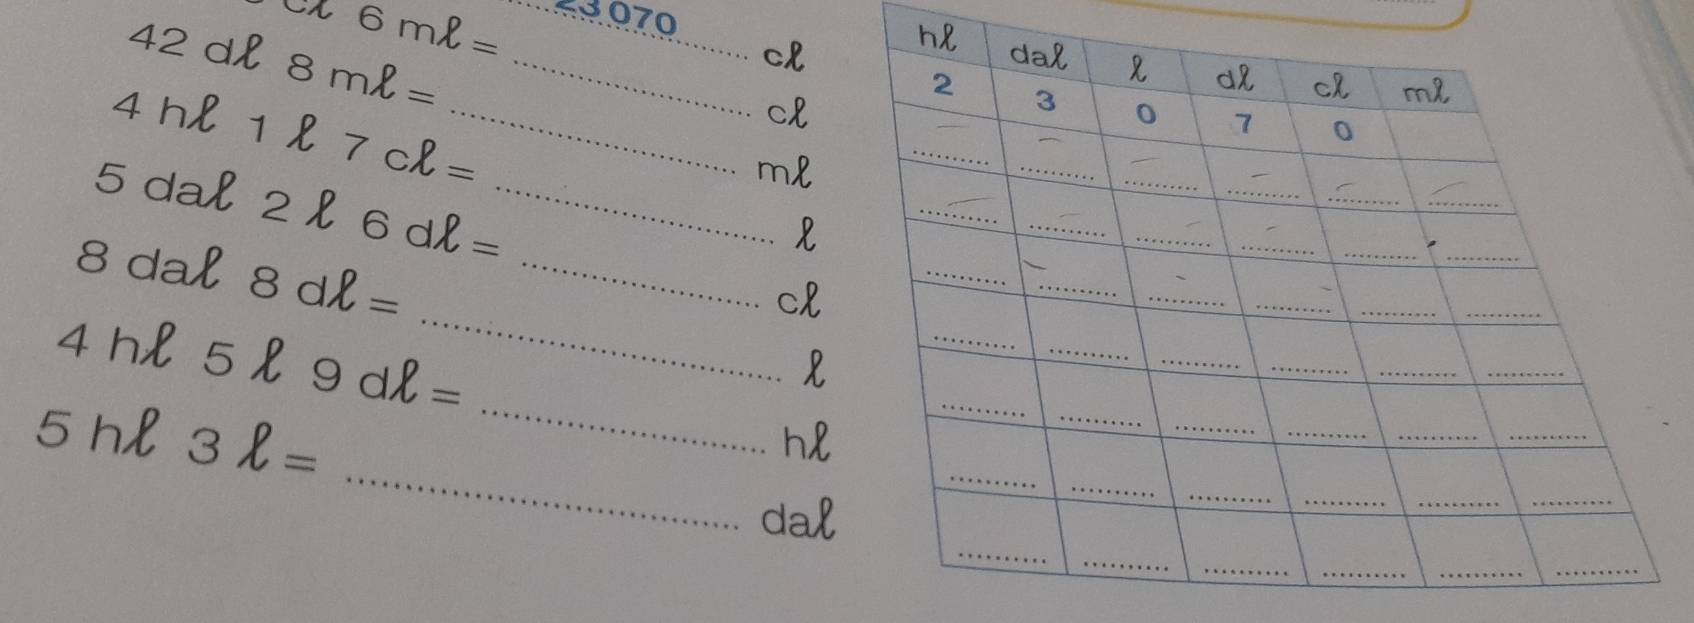 23070 cℓ
cℓ 6 mℓ = .................. cℓ
42 dℓ 8 mℓ = .................. mℓ
4 hℓ 1 ℓ 7 cℓ = .................. ℓ
5 daℓ 2 ℓ 6 dℓ = .................. cℓ
8 daℓ 8 dℓ = .................. ℓ
4 hℓ 5 ℓ 9 dℓ = .................. hℓ
5 hℓ 3 ℓ = .................. daℓ
hℓ daℓ ℓ dℓ cℓ mℓ
2 3 0 7 0